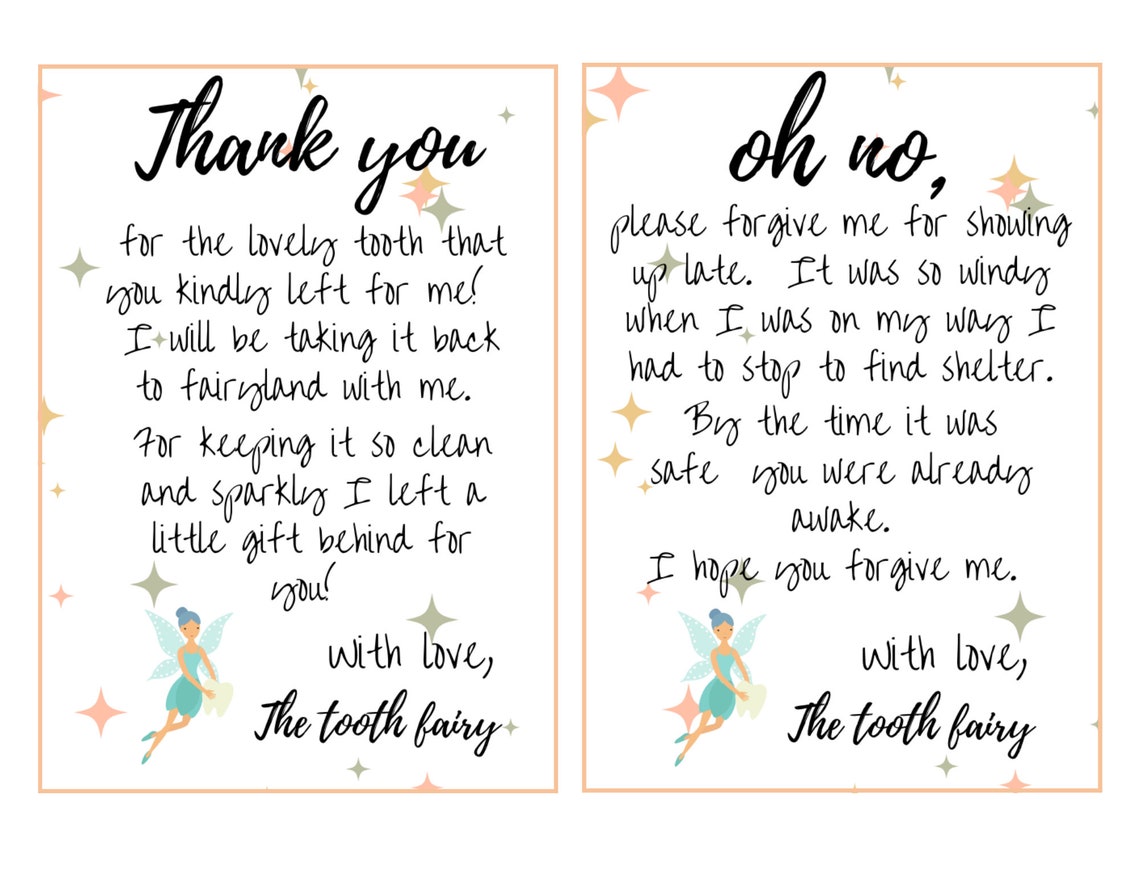 Thank you
for the lovely tooth that
you kindly left for me!
I will be taking it back
to fairyland with me.
For keeping it so clean
and sparkly I left a
little gift behind for
you!
with love,
The tooth fairy
oh no,
please forgive me for showing
up late. It was so windy
when I was on my way I
had to stop to find shelter.
By the time it was
safe you were already
awake.
I hope you forgive me.
with love,
The tooth fairy